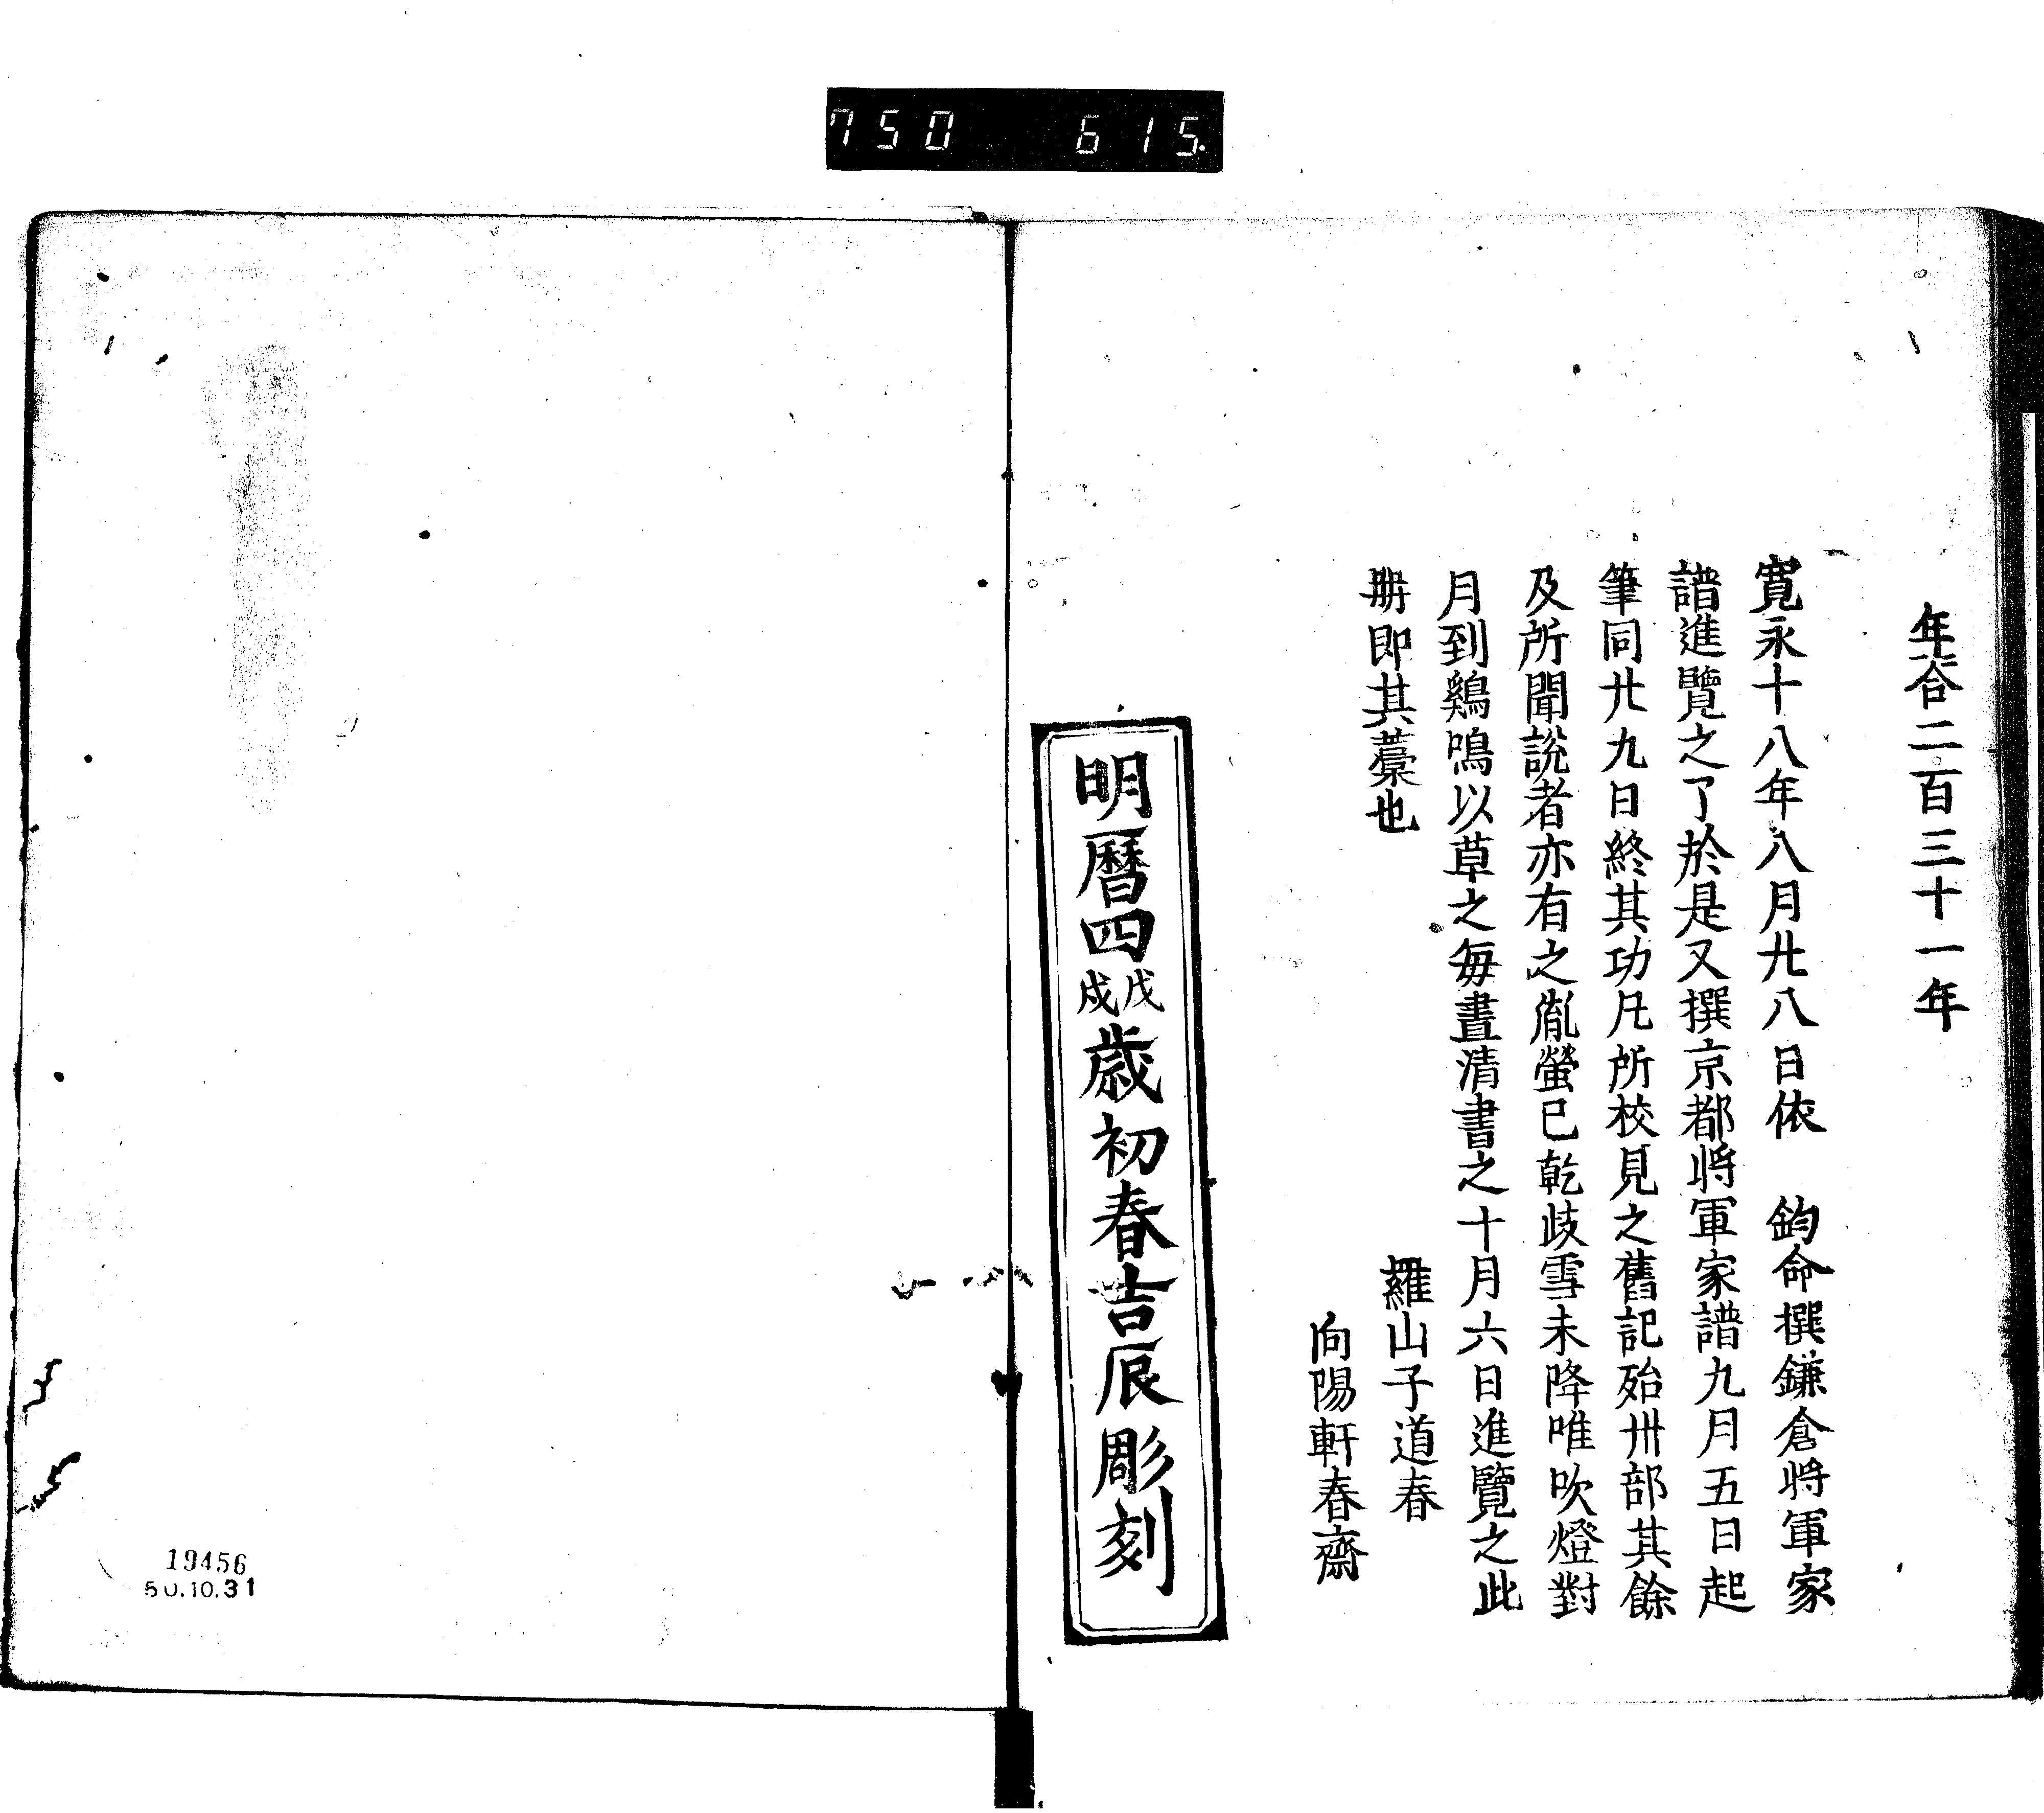 750 615.
年合二百三十一年
寛永十八年八月廿八日依　鈞命撰鎌倉將軍家
譜進覽之了於是又撰京都將軍家譜九月五日起
筆同廿九日終其功凡所校見之舊記殆卅部其餘
及所聞說者亦有之胤螢已乾歧雪未降唯吹燈對
月到鷄鳴以草之每晝清書之十月六日進覽之此
册即其藁也
羅山子道春
向陽軒春齋
明曆四戊戌歲初春吉辰彫刻
19456
50.10.31